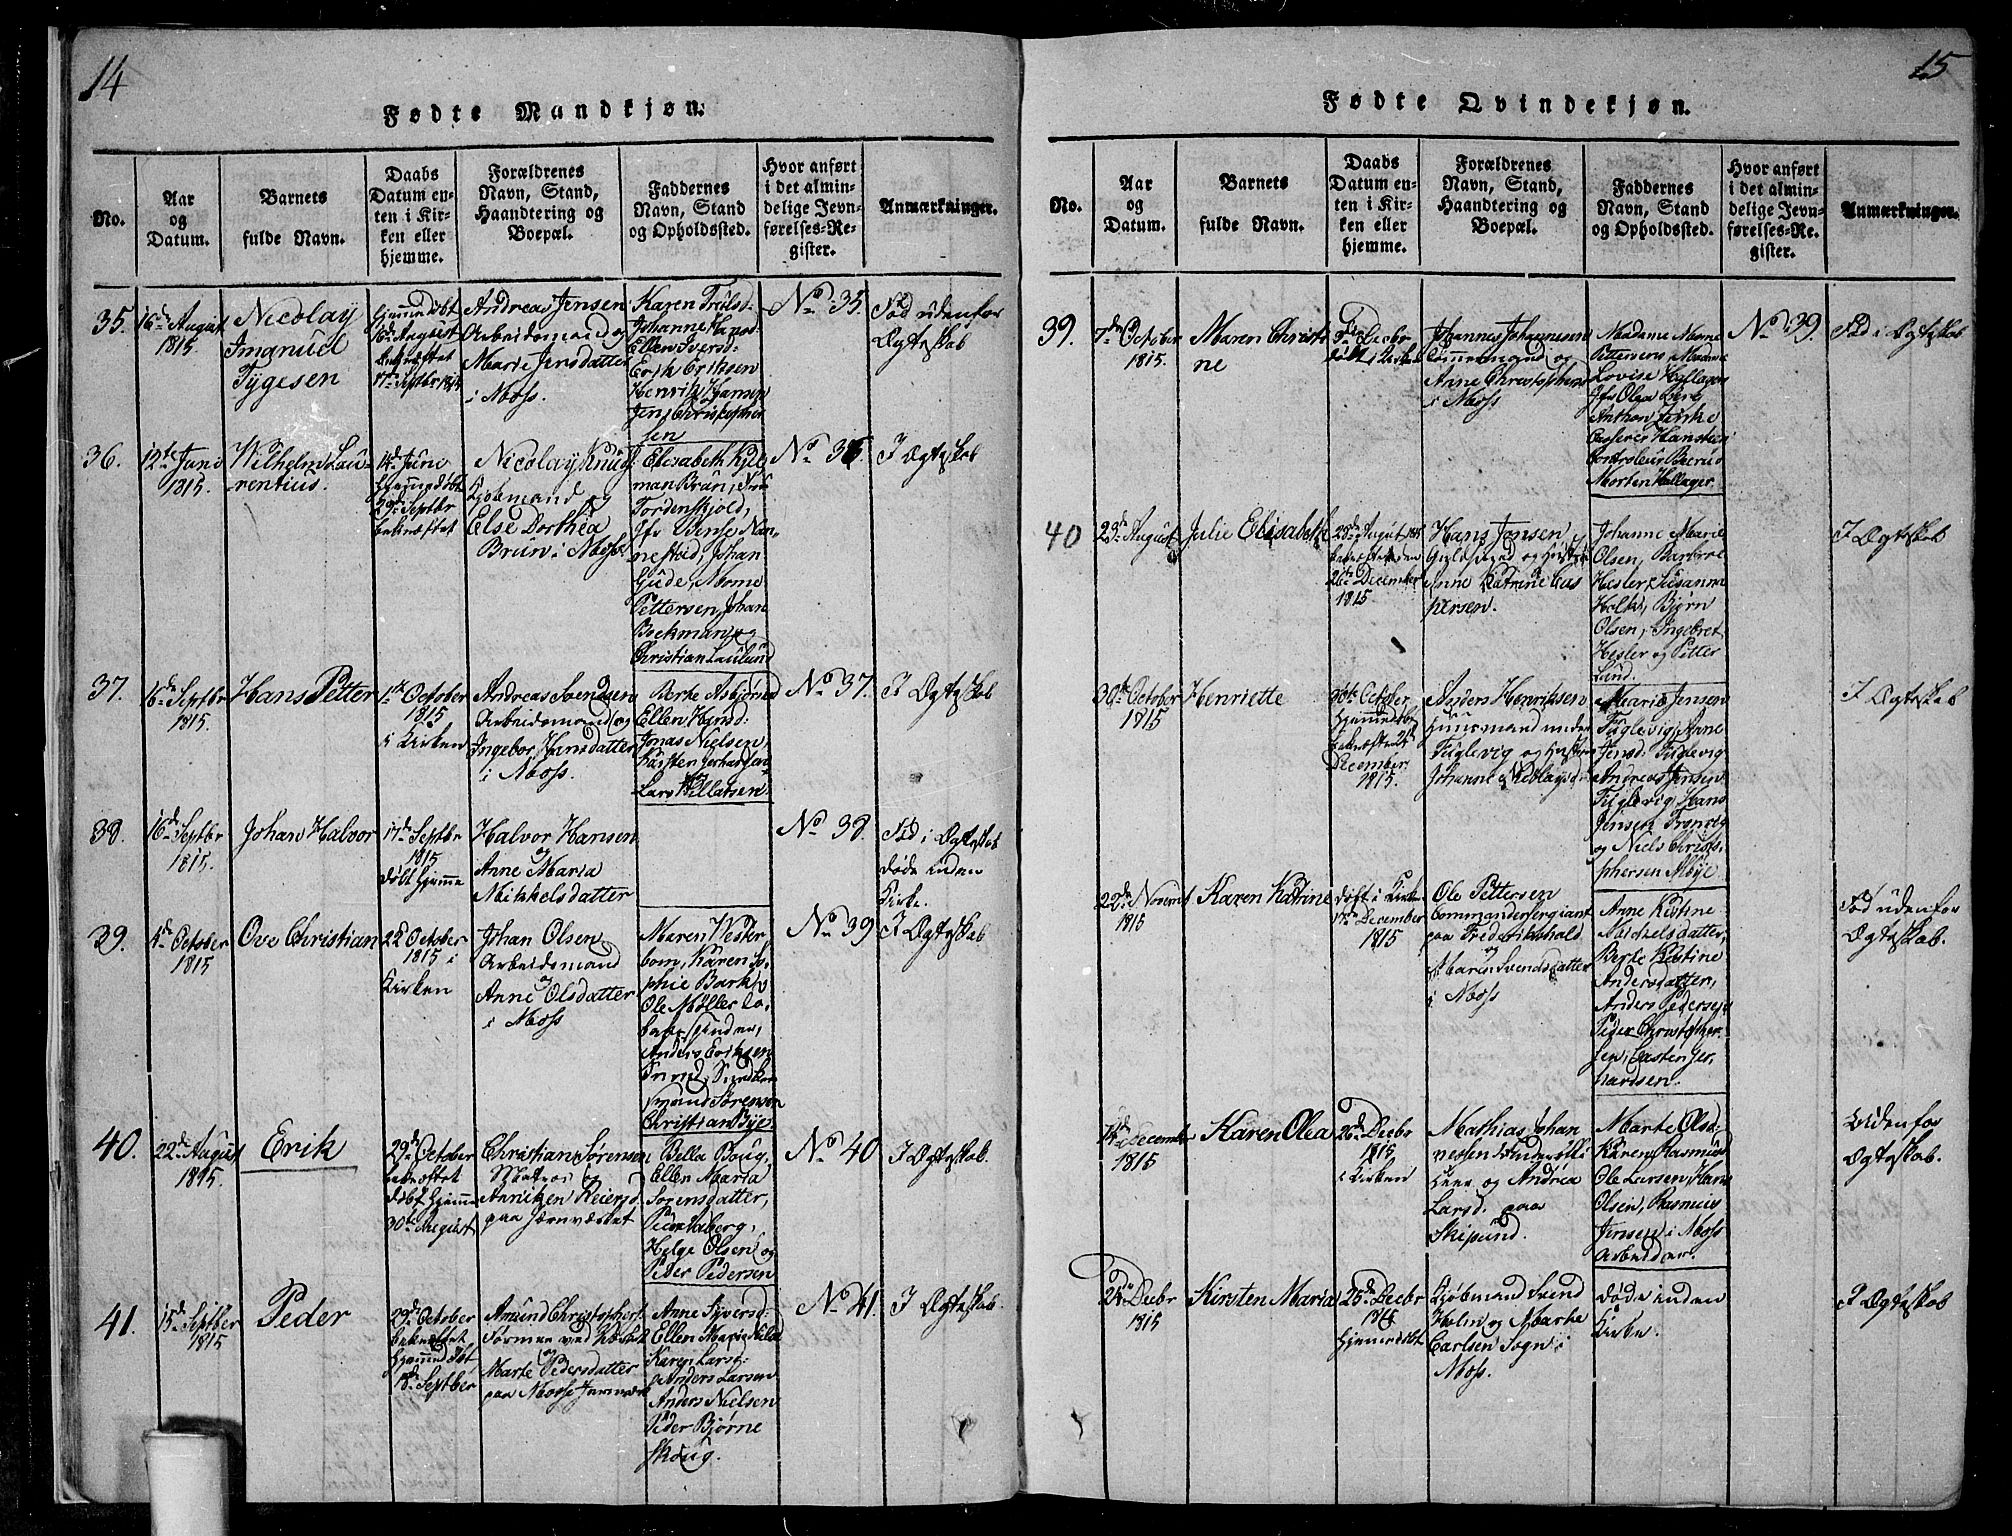 14
Fødte Mandkjøn.
No.
Aar
og
Datum.
Barnets
fulde Navn.
Daabs
Datum en-
ten i Kir-
ken eller
hjemme.
Forældrenes
Navn, Stand,
Haandtering og
Boepæl.
Faddernes
Navn, Stand
og Opholdssted.
Hvor anført
i det almin-
delige Jevn-
førelses-Re-
gister.
Anmærkninger.
35.
16de August
1815.
Nicolay
Tygesen
Hjemmedøbt
16de August
bekræftet
17de Septbr 1815
Andreas Jensen
Arbeidsmand og
Marie Jensdatter
i Moss.
Karen Truls d:
Johanne Hans d:
Ellen Ivers d:
Erik Eriksen
Henrik Hansen
Jens Christopher
sen
No 35.
Fød udenfor
Ægteskab
36.
12te Juni
1815.
Wilhelm Lau-
rentius.
14de Juni
Hjemmedøbt
29de Septbr
bekræftet
Nicolay Knud
Kjøbmand og
Else Dorthea
Brun i Moss
Elisabeth
man Brun, Fru
Tordenskjold,
Jfr
nestad, Johan
Gude, Momme
Pettersen, Johan
Bockman og
Christian Laulund
No 36.
I Ægteskab
37.
16de Septbr
1815.
Hans Petter
1ste October
1815
i Kirken
Andreas Svendsen
Arbeidsmand og
Ingebor Hansdatter
i Moss.
Berte Asbjørns
Ellen Hans d:
Jonas Nielsen,
Karsten Gerhardsen
Lars Willatsen
No 37.
I Ægteskab
38.
16de Septbr
1815.
Johan Halvor
17de Septbr
1815
døbt hjemme
Halvor Hansen
og
Anne Maria
Mikkelsdatter
No 38.
Fød i Ægteskab
døde inden
Kirke.
39.
1815
Ove Christian
22 October
1815 i
Kirken
Johan Olsen
Arbeidsmand
og
Anne Olsdatter
i Moss
Maren Vester
bom, Karen So
phie Bark,
Ole Møller
Anders Eriksen
mand Sørensen
Christian Bye
No 39
I Ægteskab
40.
22de August
1815.
Erik
29de October
bekræftet
døbt hjemme
30te August
Christian Sørensen
Matros og
Annichen Reiersd.
paa Jernværket
Bella Boug,
Ellen Maria
Sørensdatter,
Helge Olsen og
Peder Pedersen
No 40
I Ægteskab.
41.
15de Septbr
1815
Peder
29de October
bekræftet
Hjemmedøbt
18de Septber
Amund Christophers.
Marte Pedersdatter
paa Mosse Jernværk
Anne Sivers d:
Ellen Marie
Karen Lars d:
Anders Larsen
Anders Nielsen
Peder Bjørne
skoug.
No 41.
I Ægteskab.
15
Fødte Qvindekjøn.
No.
Aar
og
Datum.
Barnets
fulde Navn.
Daabs
Datum en-
ten i Kir-
ken eller
hjemme.
Forældrenes
Navn, Stand,
Haandtering og
Boepæl.
Faddernes
Navn, Stand
og Opholdssted.
Hvor anført
i det almin-
delige Jevn-
førelses-Re-
gister.
Anmærkninger.
39.
7de October
1815.
Maren Christi
ne
Johannes Johannesen
Tømmermand og
Anne Christophers
i Moss
Madame Momme
Pettersens, Madame
Lovise Hallager
Jfr Olea Berg
Anthon
Casserer Hansteen
Controleur Beerus
Morten Hallager.
No 39.
Fød i Ægteskab
40
23de August
Julie Elisabeth
28de August 1815
bekræftet den
26de December
1815
Hans Jensen
Guldsmed og Hustrue
Anne Katrine Cas
persen.
Johanne Marie
Olsen, Barbroe
Hesler, Susanne
Holk, Bjørn
Olsen, Ingebret
Hesler og Petter
Lund.
I Ægteskab
30te October
1815
Henriette
30te October
Hjemmedøbt
bekræftet 26
December
1815.
Anders Henriksen
Huusmand under
Fuglevig og Hustrue
Johanne Nicolays d.
Marie Jensen
Fuglevig, Anne
Jens d: Fuglevig
Andreas Jensen
Fuglevig, Hans
Jensen
og Niels Christo-
phersen Møye.
I Ægteskab
22de Novembr
1815
Karen Katrine
døbt i Kirken
17de December
1815
Ole Pettersen
Commandersergiant
paa Frederikshald
og
Maren Svendsdatter
i Moss
Anne Kistine
Michelsdatter,
Berte Kistine
Andersdatter,
Anders Pedersen
Peder Christopher-
sen, Casten Ger,
hardsen.
Fød udenfor
Ægteskab.
14de December
1815
Karen Olea
26de Decbr
1815
i Kirken
Mathias Johan
nessen
og Andrea
Larsd. paa
Skipsund.
Marte Olsd.
Karen Rasmusd
Ole Larsen, Hans
Olsen, Rasmus
Jensen i Moss
Arbeider.
Udenfor
Ægteskab.
24de Decbr
1815
Kirsten Maria
25de Decbr
1815
Hjemmedøbt
Kjøbmand Svend
Holm og Marte
Carlsen Sogn i
Moss.
døde inden
Kirke.
I Ægteskab